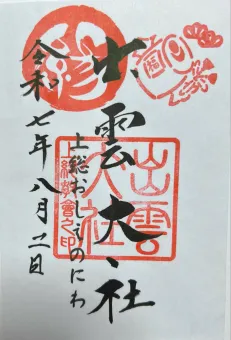 出雲大社
上総おしえのにわ
令和七年八月二日
出雲大社
上総教會之印